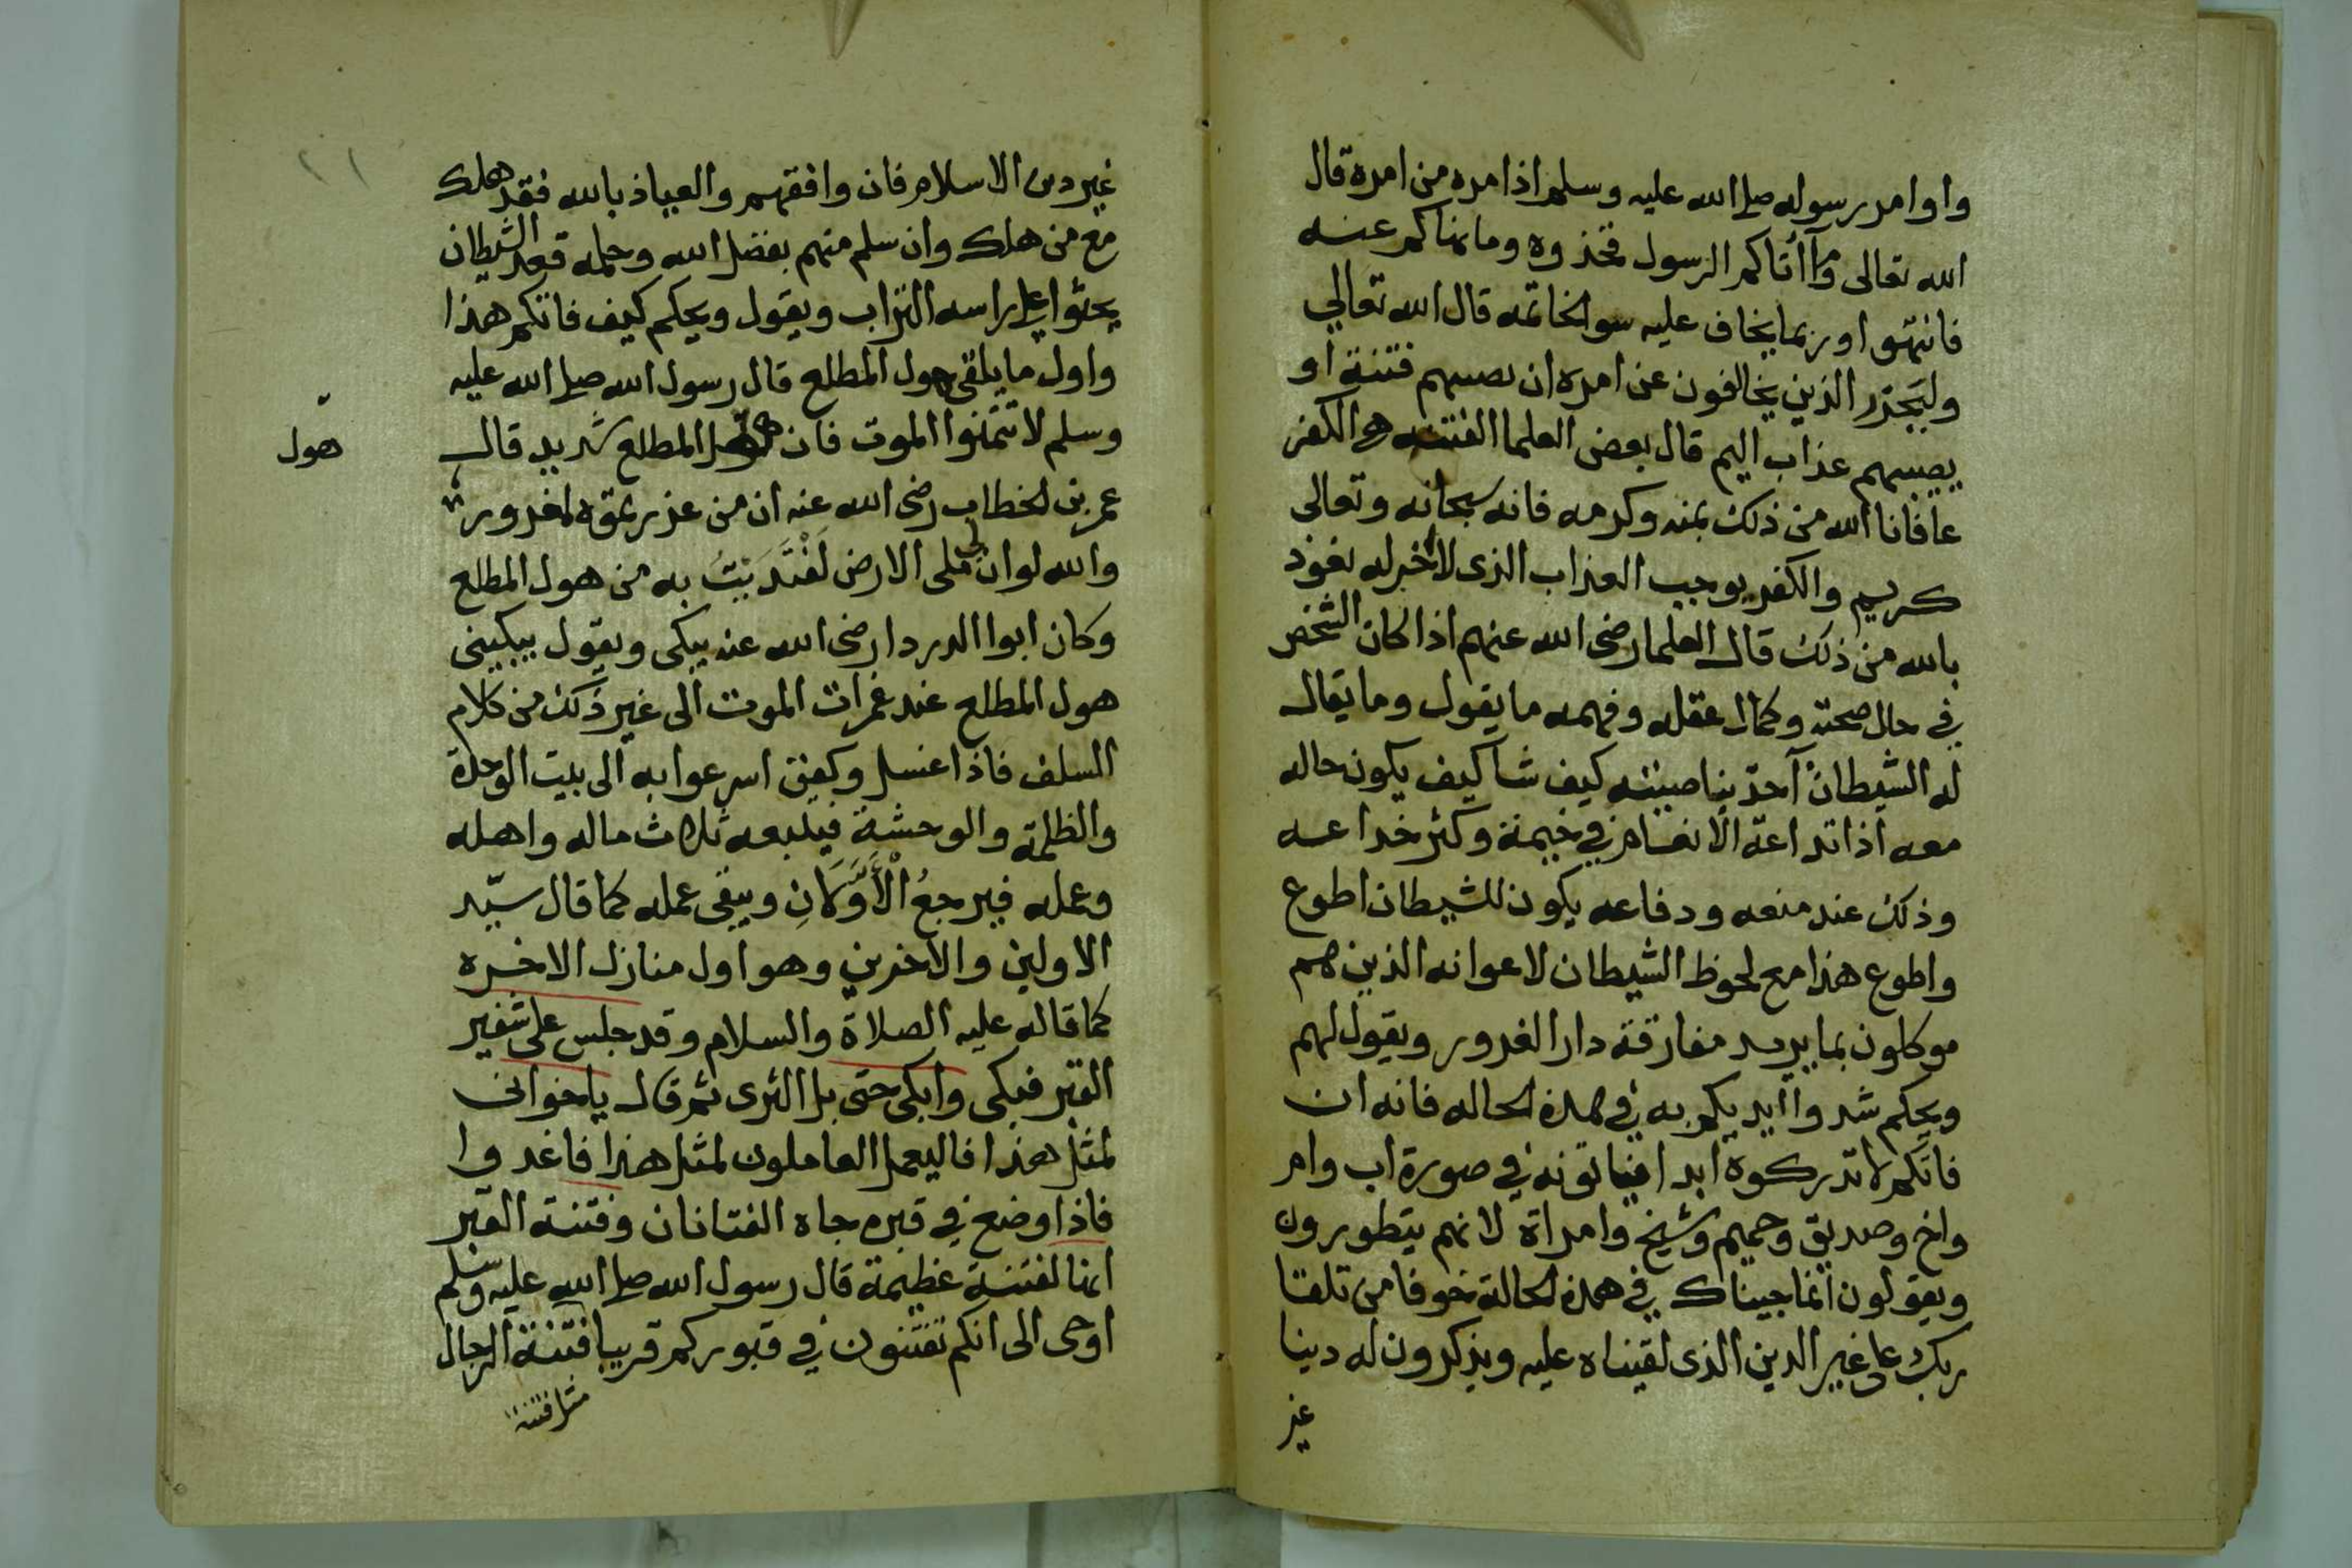 واوامر رسوله صلى الله عليه وسلم اذا امره من امره قال
الله تعالى وما أتاكم الرسول فخذوه وما نهاكم عنه
فانتهوا وربما يخاف عليه سوالخاتمه قال الله تعالي
وليحذر الذين يخالفون عن امره ان تصيبهم فتنة او
يصيبهم عذاب اليم قال بعض العلما الفتنه هي الكفر
عافانا الله من ذلك بمنه وكرمه فانه سبحانه وتعالى
كريم والكفر يوجب العذاب الذى لا اخر له نعوذ
بالله من ذلك قال العلما رضى الله عنهم اذا كان الشخص
في حال صحته وكمال عقله وفهمه ما يقول وما يقال
له الشيطان آخذ بناصيته كيف شا كيف يكون حاله
معه اذا تداعة الانفاس في خيمة وكثر خداعه
وذلك عند منعه ودفاعه يكون للشيطان اطوع
واطوع هذا مع لحوظ الشيطان لاعوانه الذين هم
موكلون بما يريد مفارقة دار الغرور ويقول لهم
ويحكم شدوا أيديكم به في هذه الحاله فانه ان
فاتكم لا تدركوه ابدا فياتونه في صورة اب وام
واخ وصديق وحميم وشيخ وامراة لانهم يتطورون
ويقولون انما جيناك في هذه الحالة خوفا من تلقا
ربك على غير الدين الذى لقيناه عليه ويذكرون له دينا
غير
١١
غير دين الاسلام فان وافقهم والعياذ بالله فقد هلك
مع من هلك وان سلم منهم بفضل الله وحلمه قعد الشيطان
يحثوا على راسه التراب ويقول ويحكم كيف فاتكم هذا
واول ما يلقى هول المطلع قال رسول الله صلى الله عليه
وسلم لا تتمنوا الموت فان المطلع شديد قال
هول
عمر بن الخطاب رضى الله عنه ان من غررتموه لمغرور
والله لو ان لى ملى الارض لفتديت به من هول المطلع
وكان ابوا الدردا رضى الله عنه يبكى ويقول يبكينى
هول المطلع عند غمرات الموت الى غير ذلك من كلام
السلف فاذا غسل وكفن اسرعوا به الى بيت الوحدة
والظلمة والوحشة فيتبعه ثلاث ماله واهله
وعمله فيرجعُ الأَوَّلانِ ويبقى عمله كما قال سيّد
الاولين والاخرين وهو اول منازل الاخره
كما قاله عليه الصلاة والسلام وقد جلس على شفير
القبر فبكى وابكى حتى بل الثرى ثم قال ياخوانى
لمثل هذا فاليعمل العاملون لمثل هذا فاغدوا
فاذا وضع في قبره جاه الفتانان وفتنة القبر
انها لفتنة عظيمة قال رسول الله صلى الله عليه وسلم
اوحى الى انكم تفتنون في قبوركم قريبا فتنة الرجال
مثل فتنة